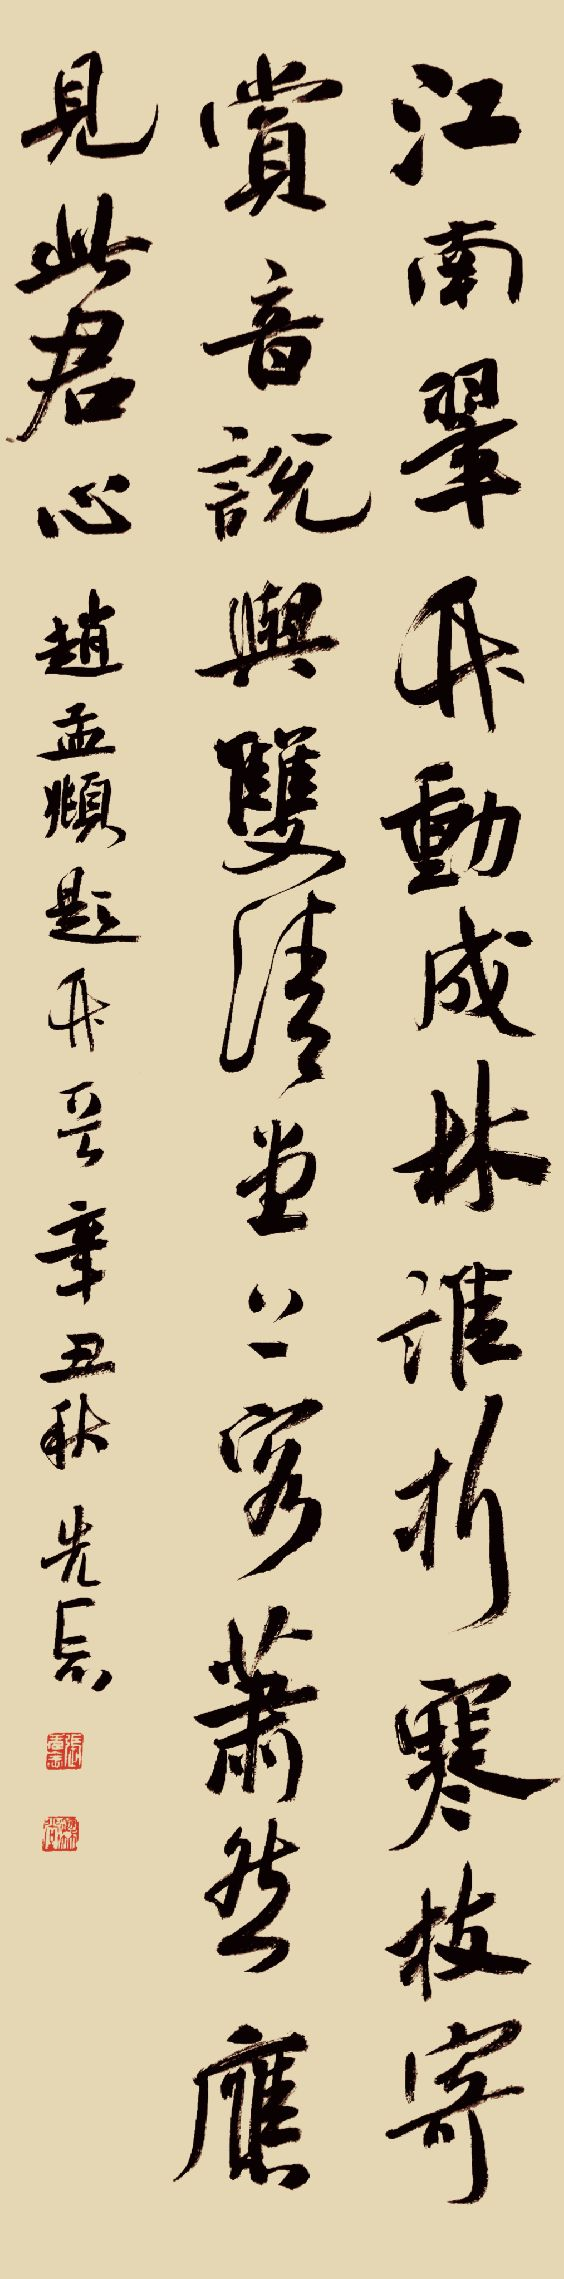 江南翠竹動成林誰折寒枝寄
賞音說與雙清堂上客蕭然應
見此君心 趙孟頫題竹 辛丑秋 先